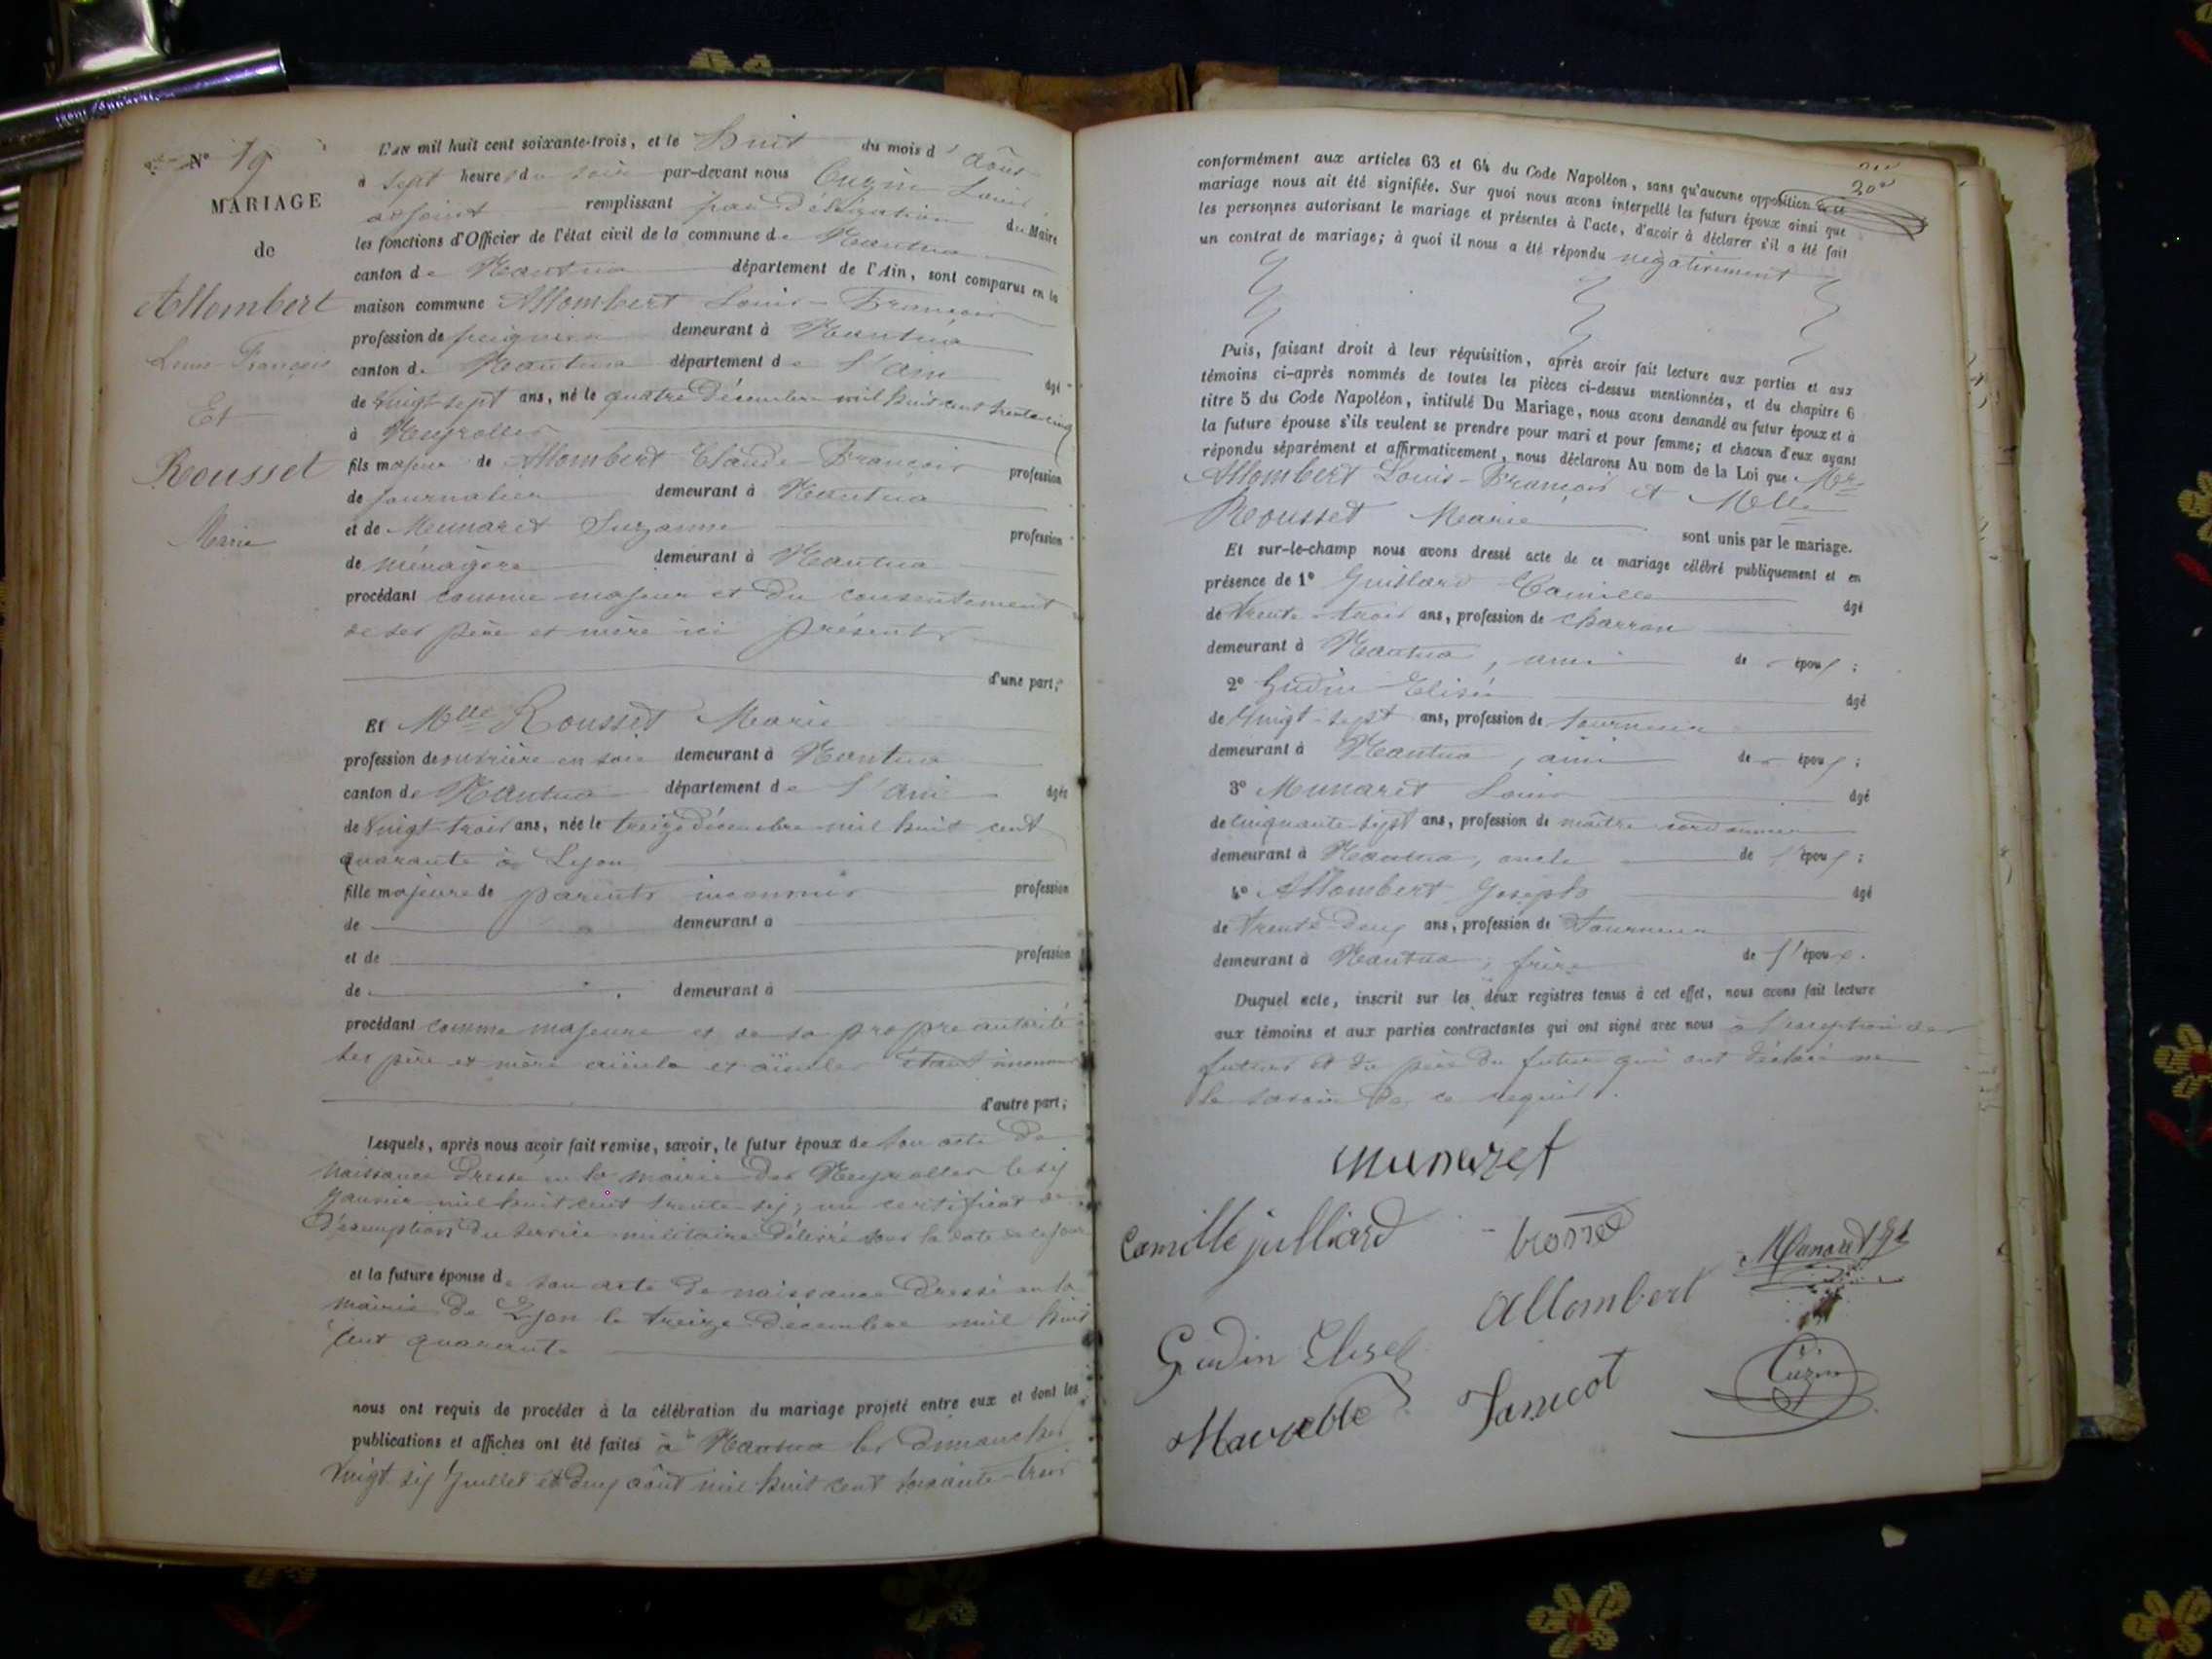 N° 19
MARIAGE
de
Allombert
Louis-François
Et
Rousset
Marie
L'an mil huit cent soixante-trois, et le huit du mois d'Août
à sept heures du soir par-devant nous Cuzin Louis
adjoint remplissant par délégation du Maire
les fonctions d'Officier de l'état civil de la commune de Nantua
canton de Nantua département de l'Ain, sont comparus en la
maison commune Allombert Louis-François
profession de demeurant à Nantua
canton de Nantua département de l'Ain âgé
de vingt-sept ans, né le quatre Décembre mil huit cent trente cinq
à Neyrolles
fils majeur de Allombert Claude-François profession
de journalier demeurant à Nantua
et de Munaret Suzanne profession
de ménagère demeurant à Nantua
procédant comme majeur et du consentement
de ses père et mère ici présents
d'une part;
Et Mlle Rousset Marie
profession de ouvrière en soie demeurant à Nantua
canton de Nantua département de l'Ain âgée
de vingt-trois ans, née le treize décembre mil huit cent
quarante à Lyon
fille majeure de parents inconnus profession
de demeurant à
et de profession
de demeurant à
procédant comme majeure et de sa propre autorité
ses père et mère aïeuls et aïeules étant inconnus
d'autre part;
Lesquels, après nous avoir fait remise, savoir, le futur époux de son acte de
naissance dressé en la mairie des Neyrolles le six
Janvier mil huit cent trente-six, un certificat
d'exemption du service militaire délivré sous la date de ce jour
et la future épouse de son acte de naissance dressé en la
mairie de Lyon le treize décembre mil huit
cent quarante
nous ont requis de procéder à la célébration du mariage projeté entre eux et dont les
publications et affiches ont été faites à Nantua les dimanches
vingt six Juillet et deux août mil huit cent soixante-trois
conformément aux articles 63 et 64 du Code Napoléon, sans qu'aucune opposition
mariage nous ait été signifiée. Sur quoi nous avons interpellé les futurs époux ainsi que
les personnes autorisant le mariage et présentes à l'acte, d'avoir à déclarer s'il a été fait
un contrat de mariage; à quoi il nous a été répondu négativement
Puis, faisant droit à leur réquisition, après avoir fait lecture aux parties et aux
témoins ci-après nommés de toutes les pièces ci-dessus mentionnées, et du chapitre 6
titre 5 du Code Napoléon, intitulé Du Mariage, nous avons demandé au futur époux et à
la future épouse s'ils veulent se prendre pour mari et pour femme; et chacun d'eux ayant
répondu séparément et affirmativement, nous déclarons Au nom de la Loi que Mr
Allombert Louis-François et Mlle
Rousset Marie sont unis par le mariage.
Et sur-le-champ nous avons dressé acte de ce mariage célébré publiquement et en
présence de 1° Camille âgé
de trente-trois ans, profession de charron
demeurant à Nantua, ami de l'époux;
2° Gudin Elisée âgé
de vingt-sept ans, profession de tourneur
demeurant à Nantua, ami de l'époux;
3° Munaret Louis âgé
de cinquante-sept ans, profession de maître cordonnier
demeurant à Nantua, oncle de l'époux;
4° Allombert Joseph âgé
de trente-deux ans, profession de tourneur
demeurant à Nantua, frère de l'époux.
Duquel acte, inscrit sur les deux registres tenus à cet effet, nous avons fait lecture
aux témoins et aux parties contractantes qui ont signé avec nous à l'exception des
futurs et du père du futur qui ont déclaré ne
le savoir de ce requis.
Munaret
Camille julliard
Munaret
Allombert
Gudin Elisé
Cuzin
Janicot